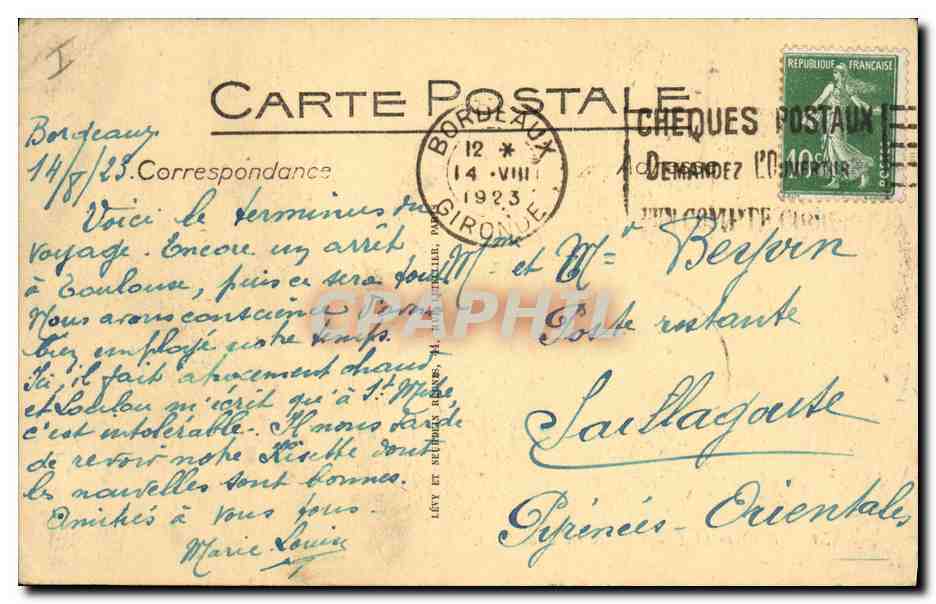 I
CARTE POSTALE
Bordeaux
14/8/23
Correspondance
BORDEAUX
12 *
14 . VIII
1923
GIRONDE
CHEQUES POSTAUX
DEMANDEZ L'OUVERTURE
D'UN COMPTE
REPUBLIQUE FRANÇAISE
10c
POSTES
Voici le terminus du
voyage. Encore un arrêt
à Toulouse, puis ce sera tout.
Nous avons conscience d'avoir
bien employé notre temps.
Ici, il fait atrocement chaud
et Loulou m'écrit qu'à St Maire,
c'est intolérable. Il nous tarde
de revoir notre Lisette dont
les nouvelles sont bonnes.
Amitiés à vous tous.
Marie Louise
LÉVY ET NEURDEIN RÉUNIS, 44, RUE LETELLIER, PARIS
Mr et Mme
Poste restante
Saillagouse
Pyrénées-Orientales
CPAPHIL